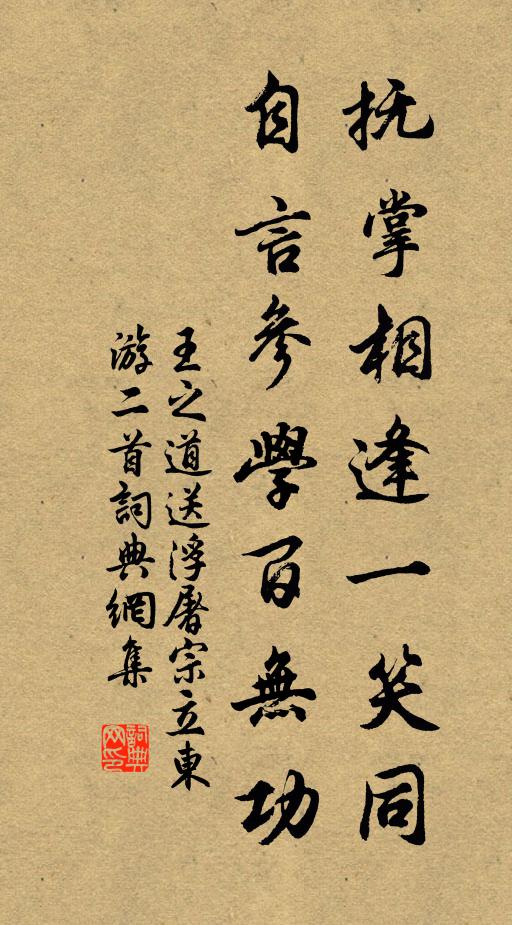 抚掌相逢一笑同
自言参學百無功
王之道送浮屠宗立東
游二首詞典網集
詞典
网印